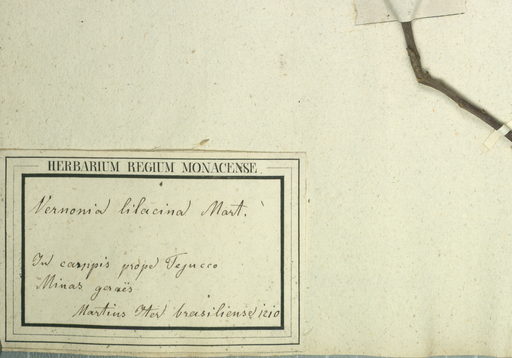 HERBARIUM REGIUM MONACENSE.
Vernonia lilacina Mart.
In campis prope Tejucco
Minas geraës
Martius Iter brasiliense 1210